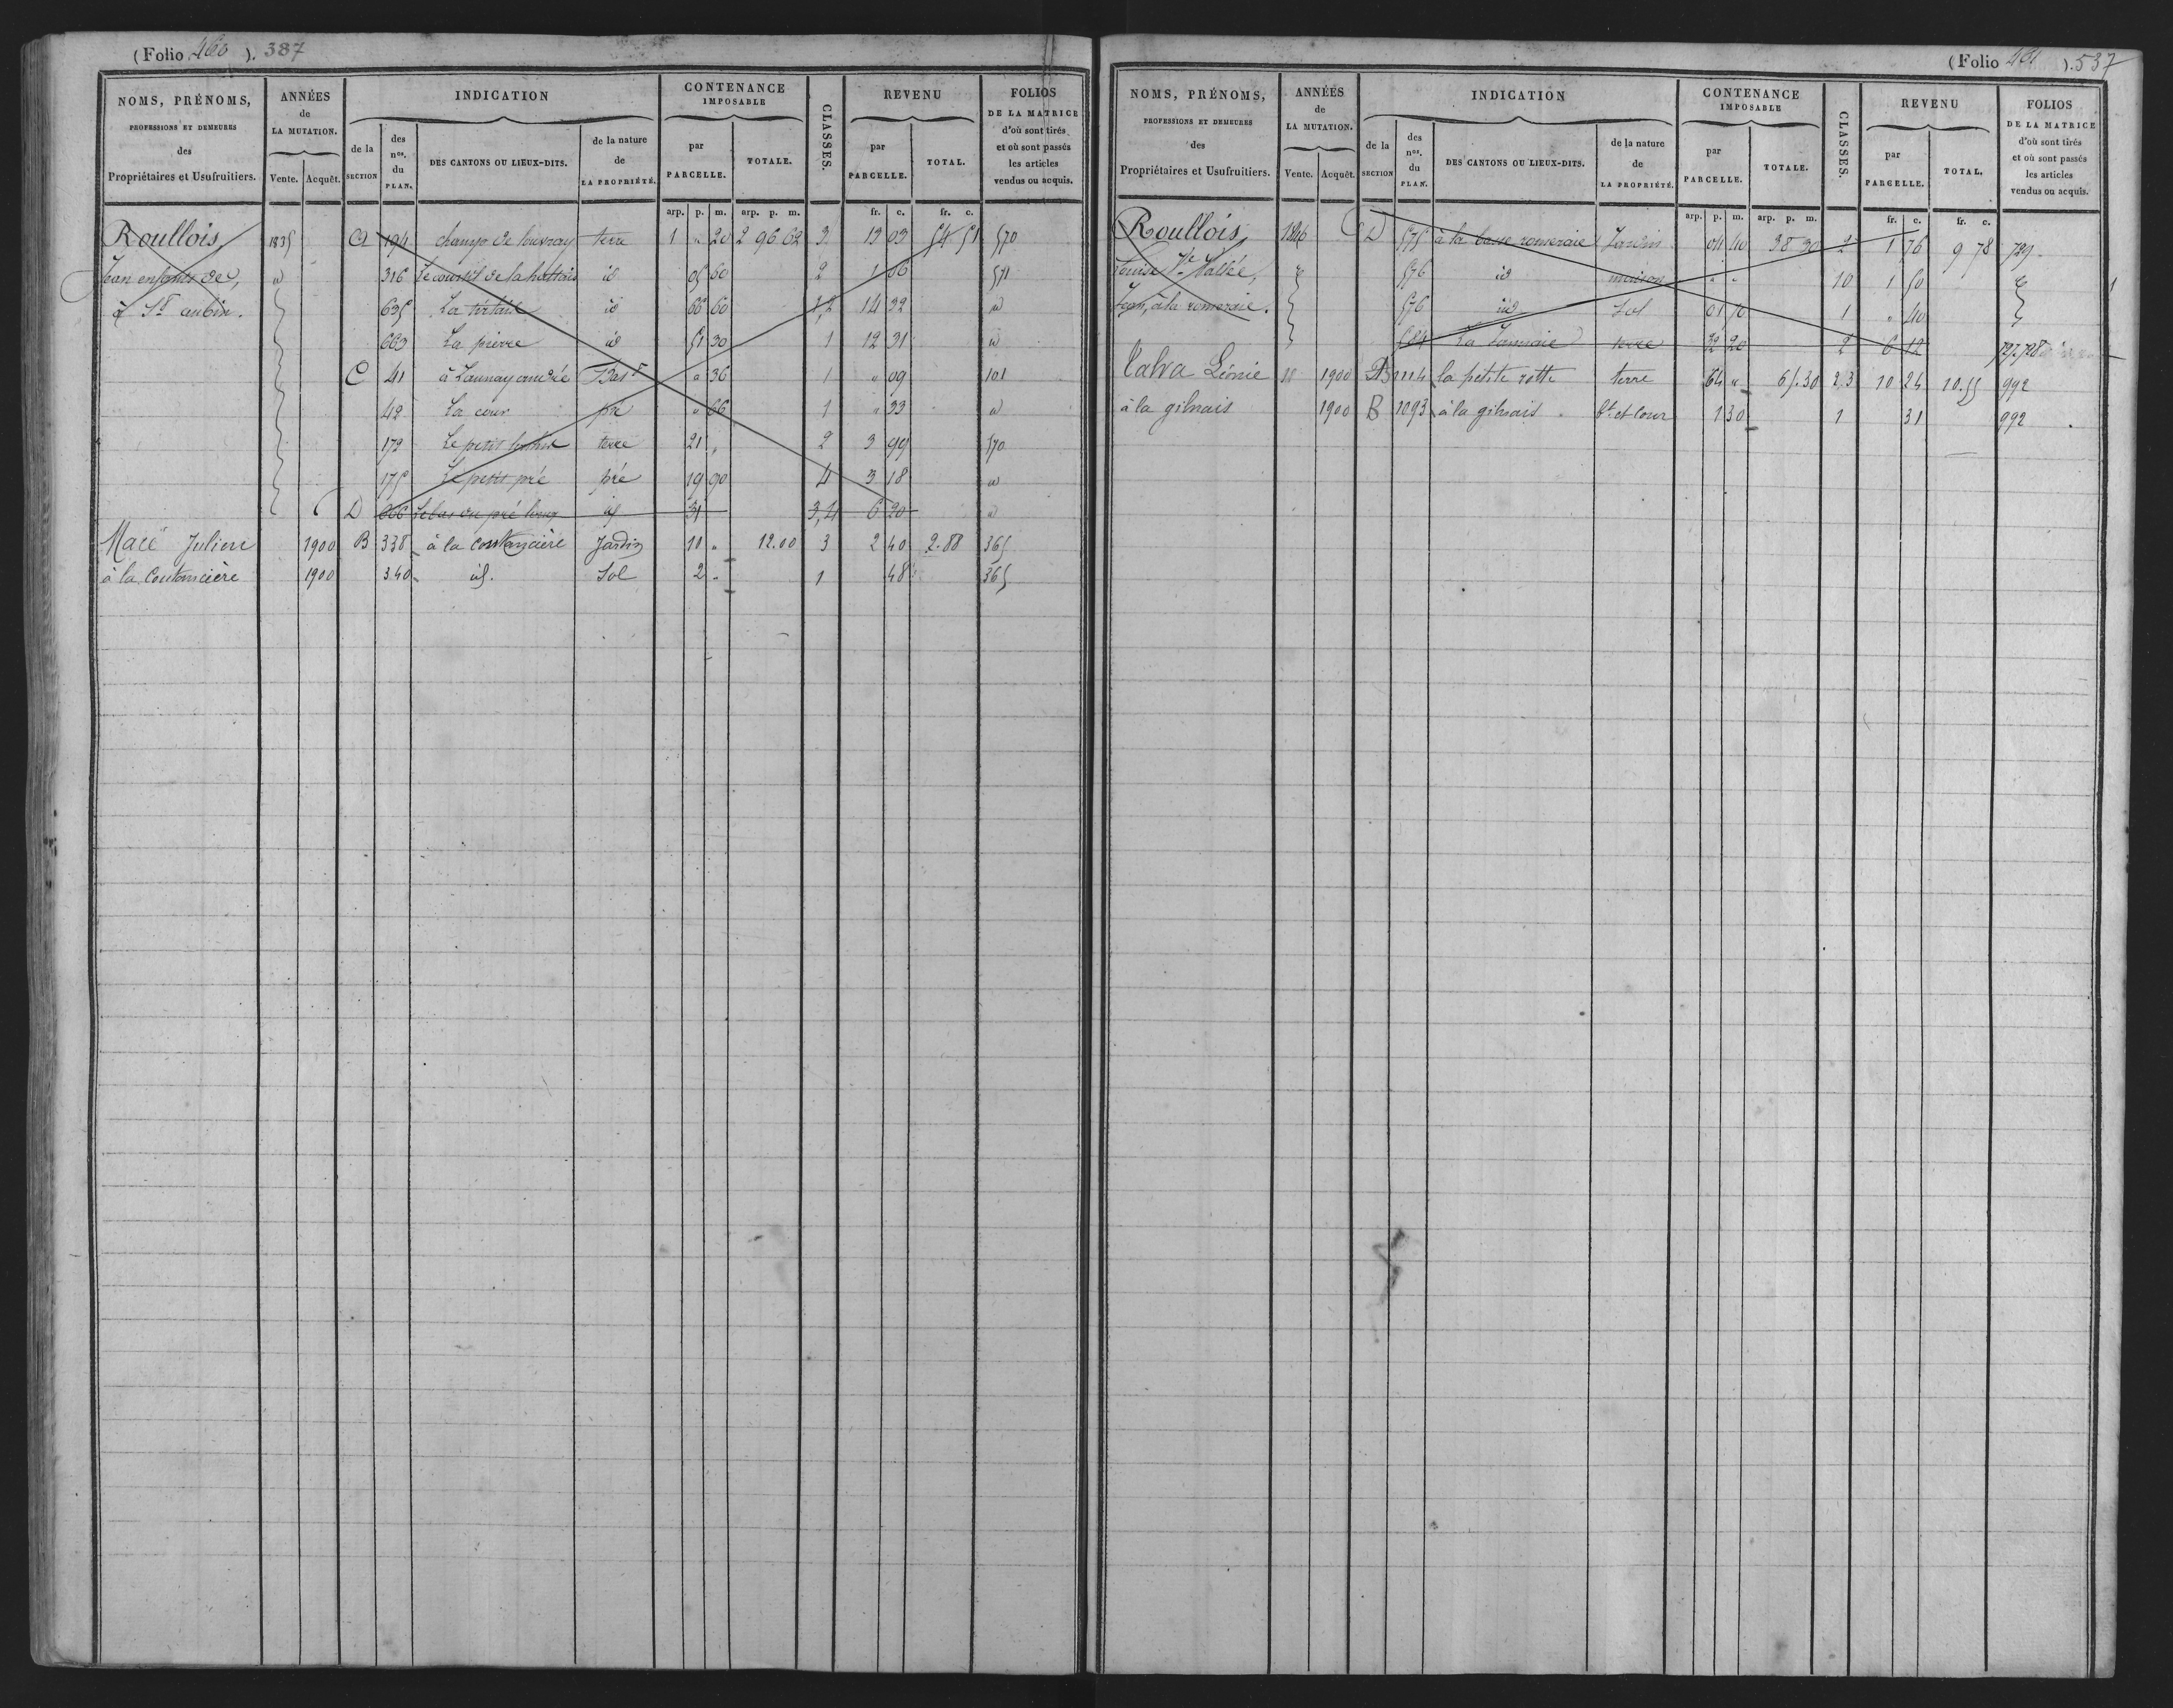 (Folio 460 ). 387
NOMS, PRÉNOMS, PROFESSIONS ET DEMEURES des Propriétaires et Usufruitiers.
ANNÉES de LA MUTATION. Vente. Acquêt.
INDICATION
de la SECTION des nos. du PLAN. DES CANTONS OU LIEUX-DITS. de la nature de LA PROPRIÉTÉ.
CONTENANCE IMPOSABLE par PARCELLE. TOTALE.
CLASSES.
REVENU par PARCELLE. TOTAL.
FOLIOS DE LA MATRICE d'où sont tirés et où sont passés les articles vendus ou acquis.
arp. p. m. arp. p. m. fr. c. fr. c.
Roullois 1835 a 194 champ de louvray terre 1 " 20 2 96 62 3 13 03 54 51 570
Jean enfants de, id 316 Le courtil de la id 05 60 2 1 66 571
à St aubin. 635 La id 66 60 1,2 14 32 id
663 La pierre id 51 30 1 12 31 id
C 41 à Launay andrée Bast " 36 1 " 09 101
42 La cour pré " 66 1 " 33 id
172 Le petit terre 21 " 2 3 99 570
175 Le petit pré pré 19 90 4 3 18 id
D 666 Le bas du pré id 31 3,4 6 20 id
Macé Julien 1900 B 338 à la Contancière Jardin 10 " 12.00 3 2 40 2.88 365
à la Contancière 1900 340 id. Sol 2 " 1 48 365
(Folio 461 ). 537
NOMS, PRÉNOMS, PROFESSIONS ET DEMEURES des Propriétaires et Usufruitiers.
ANNÉES de LA MUTATION. Vente. Acquêt.
INDICATION
de la SECTION des nos. du PLAN. DES CANTONS OU LIEUX-DITS. de la nature de LA PROPRIÉTÉ.
CONTENANCE IMPOSABLE par PARCELLE. TOTALE.
CLASSES.
REVENU par PARCELLE. TOTAL.
FOLIOS DE LA MATRICE d'où sont tirés et où sont passés les articles vendus ou acquis.
arp. p. m. arp. p. m. fr. c. fr. c.
Roullois, 1846 D 575 à la basse romeraie Jardin 04 40 38 30 2 1 76 9 78 729
Louise Ve Vallée, 576 id maison " " 10 1 50
Jean, à la romeraie. 576 id Sol 01 70 1 " 40
584 La terre 32 20 2 6 12 727.728
Talva Léonie 1900 B 1114 la petite rotte terre 64 " 65.30 2.3 10 24 10.55 992
à la gilnais 1900 B 1093 à la gilnais. bt. et cour 1 30 1 31 992